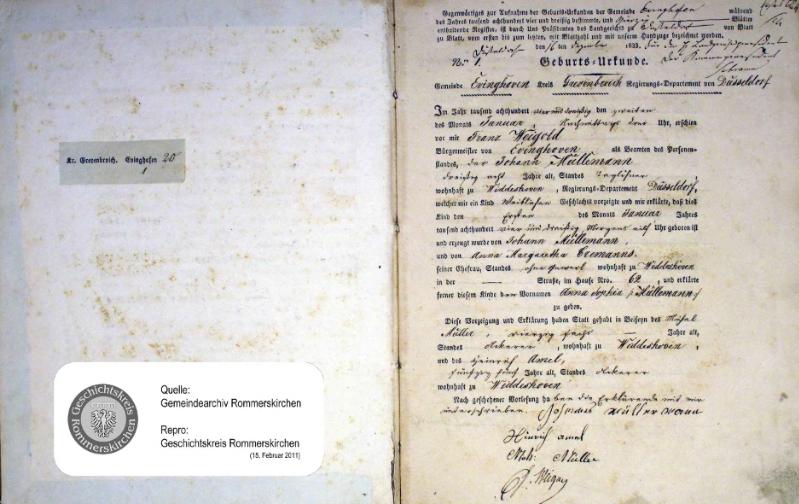 Kr. Grevenbroich. Evinghofen 20
1
GESCHICHTSKREIS
ROMMERSKIRCHEN
Quelle:
Gemeindearchiv Rommerskirchen
Repro:
Geschichtskreis Rommerskirchen
(15. Februar 2011)
Gegenwärtiges zur Aufnahme der Geburts-Urkunden der Gemeinde Evinghoven während
des Jahres tausend achthundert vier und dreißig bestimmte, und Blätter
enthaltende Register, ist durch Uns Präsidenten des Landgerichts zu Düsseldorf von Blatt
zu Blatt, vom ersten bis zum letzten, mit Blattzahl und mit unserm Handzuge bezeichnet worden.
Düsseldorf den 16 ten Dezember 1833. Für den Landgerichtspräsidenten
Der Kammerpräsident
Nro. 1.
Geburts-Urkunde.
Gemeinde Evinghoven Kreis Grevenbroich Regierungs-Departement von Düsseldorf
Im Jahr tausend achthundert vier und dreißig den zweiten
des Monats Januar Nachmittags Uhr, erschien
vor mir Franz Weigold
Bürgermeister von Evinghoven als Beamten des Personen-
standes, der Johann Müllemann
dreißig acht Jahre alt, Standes Taglöhner
wohnhaft zu Widdeshoven, Regierungs-Departement Düsseldorf,
welcher mir ein Kind Weiblichen Geschlechts vorzeigte und mir erklärte, daß dieß
Kind den Ersten des Monats Januar Jahres
tausend achthundert vier und dreißig Morgens eilf Uhr geboren ist
und erzeugt wurde von Johann Müllemann,
und von Anna Margaretha
seiner Ehefrau, Standes ohne Gewerb wohnhaft zu Widdeshoven
in der — Straße, im Hause Nro. 62, und erklärte
ferner diesem Kinde den Vornamen Anna Sophia (Müllemann)
zu geben.
Diese Vorzeigung und Erklärung haben Statt gehabt in Beiseyn des Michel
Müller, vierzig sechs — Jahre alt,
Standes Ackerer, wohnhaft zu Widdeshoven,
und des Heinrich Amel,
fünfzig fünf Jahre alt, Standes Ackerer
wohnhaft zu Widdeshoven
Nach geschehener Vorlesung haben die Erklärende mit mir
unterschrieben. Johannes Müllermann
Hinrich amel
Müller